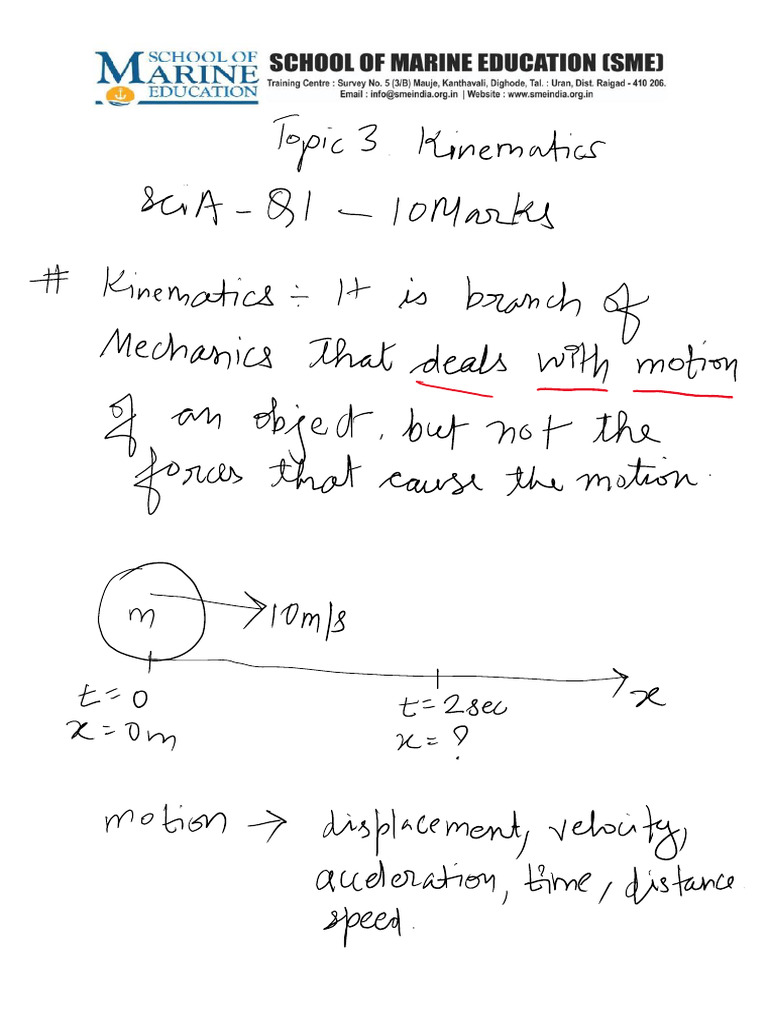 SCHOOL OF
MARINE
EDUCATION
SCHOOL OF MARINE EDUCATION (SME)
Training Centre : Survey No. 5 (3/B) Mauje, Kanthavali, Dighode, Tal. : Uran, Dist. Raigad - 410 206.
Email : info@smeindia.org.in | Website : www.smeindia.org.in
Topic 3 Kinematics
Sci A - Q1 - 10 Marks
# Kinematics ÷ It is branch of
Mechanics that deals with motion
of an object, but not the
forces that cause the motion.
m
10m/s
x
t = 0
x = 0m
t = 2 sec
x = ?
motion → displacement, velocity,
acceleration, time, distance
speed.